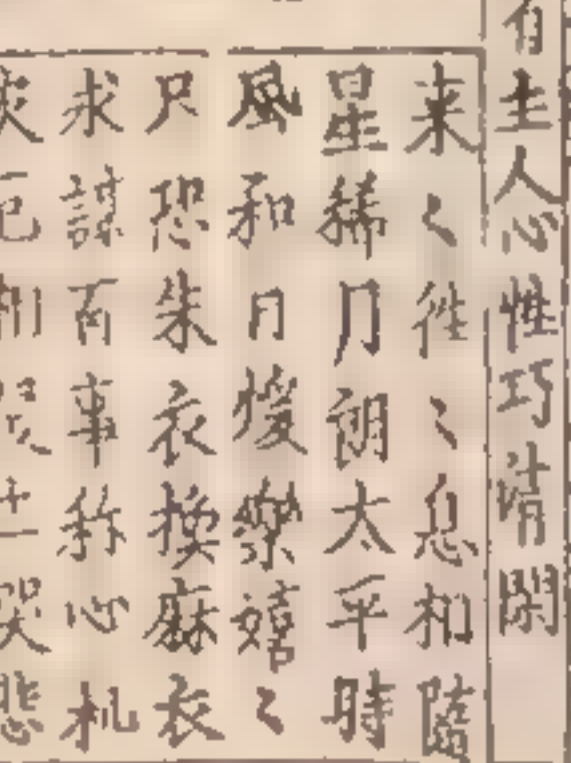 有主人心性巧清閑
来〻徃〻息相隨
星稀月朗太平時
風和日煖樂嬉〻
尺恐朱衣換麻衣
求謀百事称心机